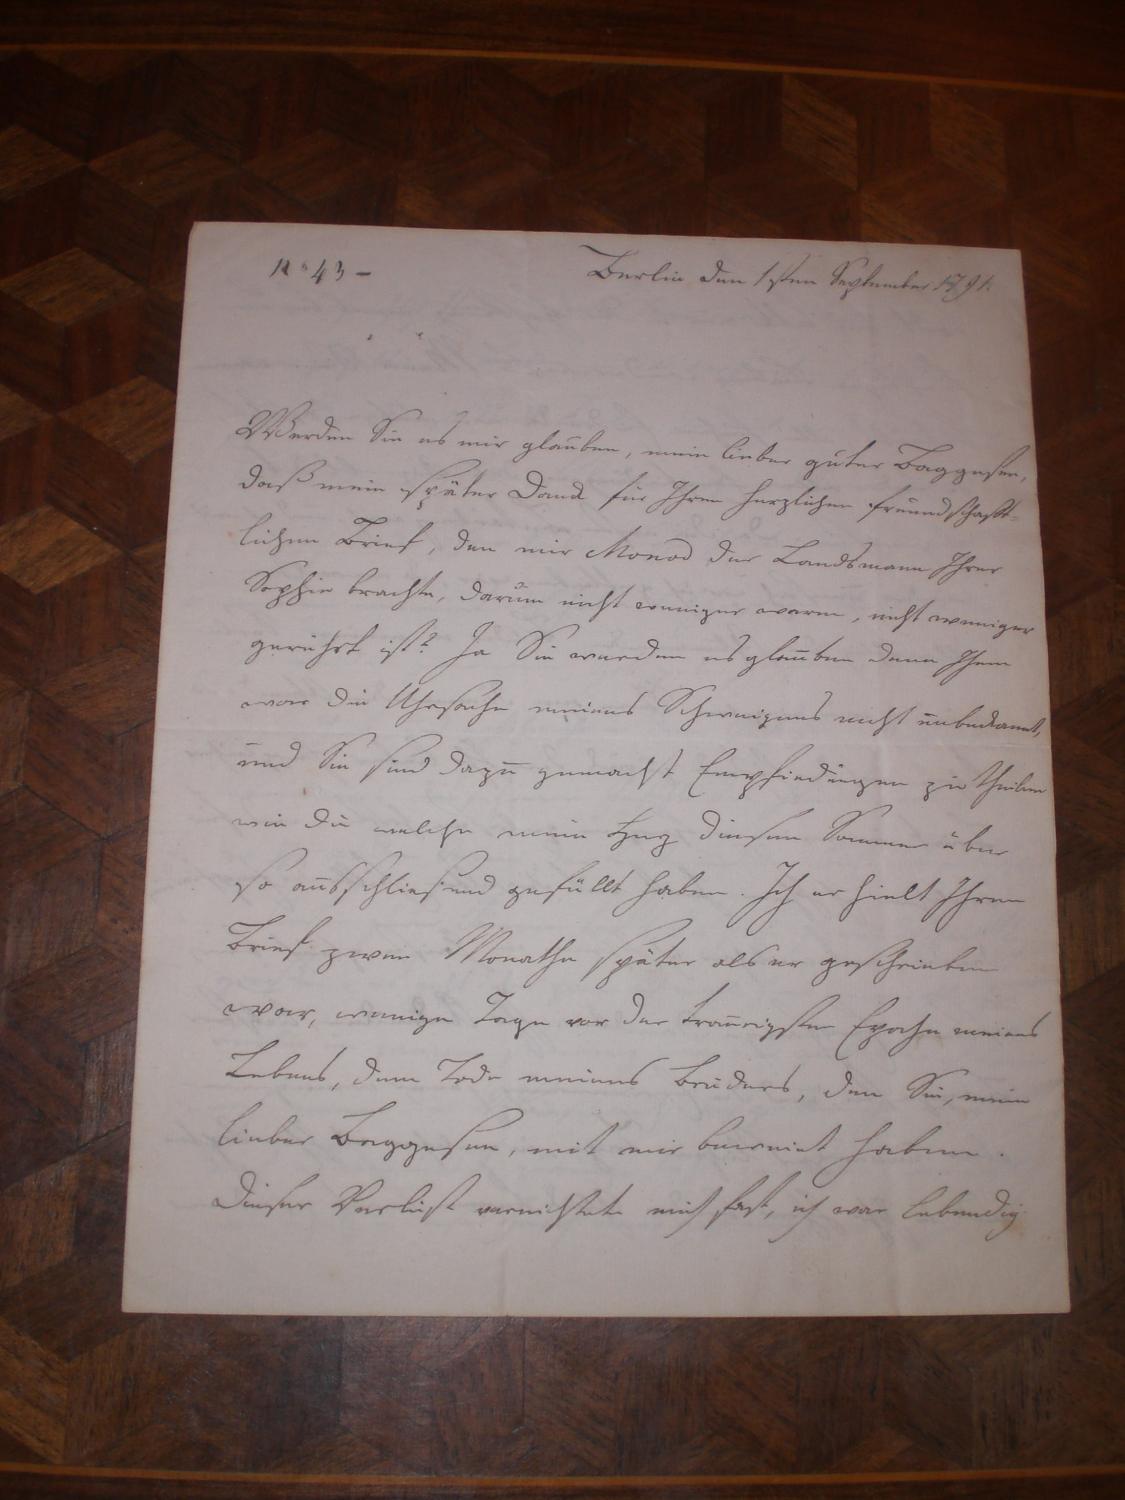 N° 43 –
Berlin den 1sten September 1791.
Werden Sie es mir glauben, mein lieber guter Baggesen,
daß mein später Dank für Ihren herzlichen freundschaft-
lichen Brief, den mir Monod der Landsmann Ihrer
Sophie brachte, darum nicht weniger warm, nicht weniger
gerührt ist? Ja Sie werden es glauben denn Ihnen
war die Uhrsache meines Schweigens nicht unbekannt,
und Sie sind dazu gemacht Empfindungen zu theilen
wie die welche mein Herz diesen Sommer über
so ausschliesend gefüllt haben. Ich erhielt Ihren
Brief zwen Monathe später als er geschrieben
war, wenige Tage vor der traurigsten Epoche meines
Lebens, dem Tode meines Bruders, den Sie, mein
lieber Baggesen, mit mir beweint haben.
Dieser Verlust vernichtete mich fast, ich war lebendig